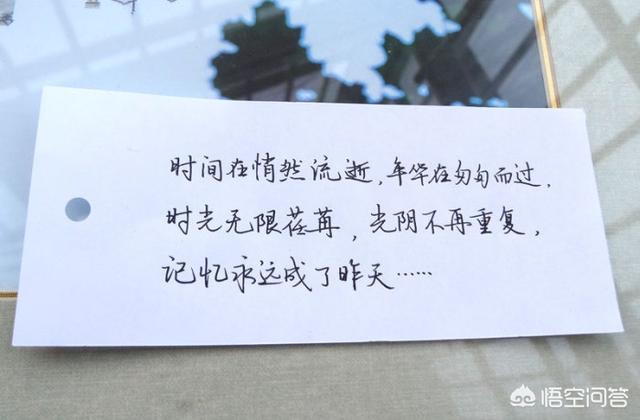 时间在悄然流逝，年华在匆匆而过，
时光无限荏苒，光阴不再重复，
记忆永远成了昨天……
悟空问答